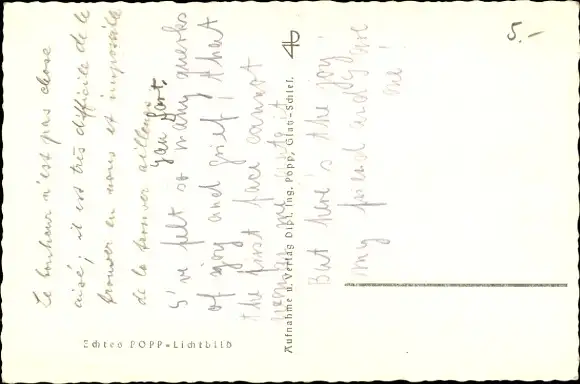 Le bonheur n'est pas chose
aisé; il est très difficile de le
trouver en nous et impossible
de le trouver ailleurs
I've felt so many quirks
of joy and grief! that
the first face cannot
But here's the joy
my friend and I are
one!
Aufnahme u. Verlag Dipl. Ing. Popp, Glatz-Schles.
Echtes POPP-Lichtbild
5.-